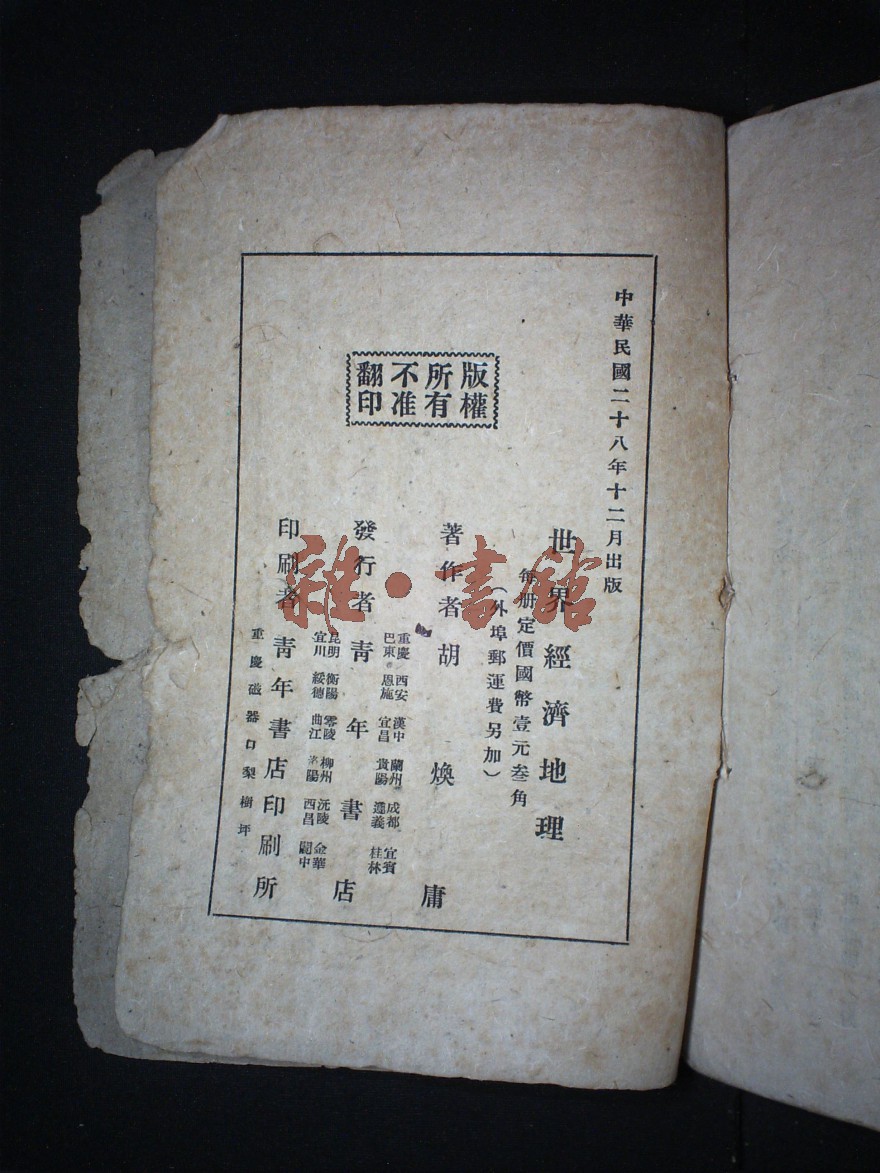 中華民國二十八年十二月出版
世界經濟地理
每册定價國幣壹元叁角
（外埠郵運費另加）
版權所有
不准翻印
著作者 胡煥庸
發行者 青年書店
重慶 西安 漢中 蘭州 成都 宜賓
巴東 恩施 宜昌 貴陽 遵義 桂林
昆明 衡陽 零陵 柳州 沅陵 金華
宜川 綏德 曲江 洛陽 西昌 閬中
印刷者 青年書店印刷所
重慶磁器口梨樹坪
雜·書館